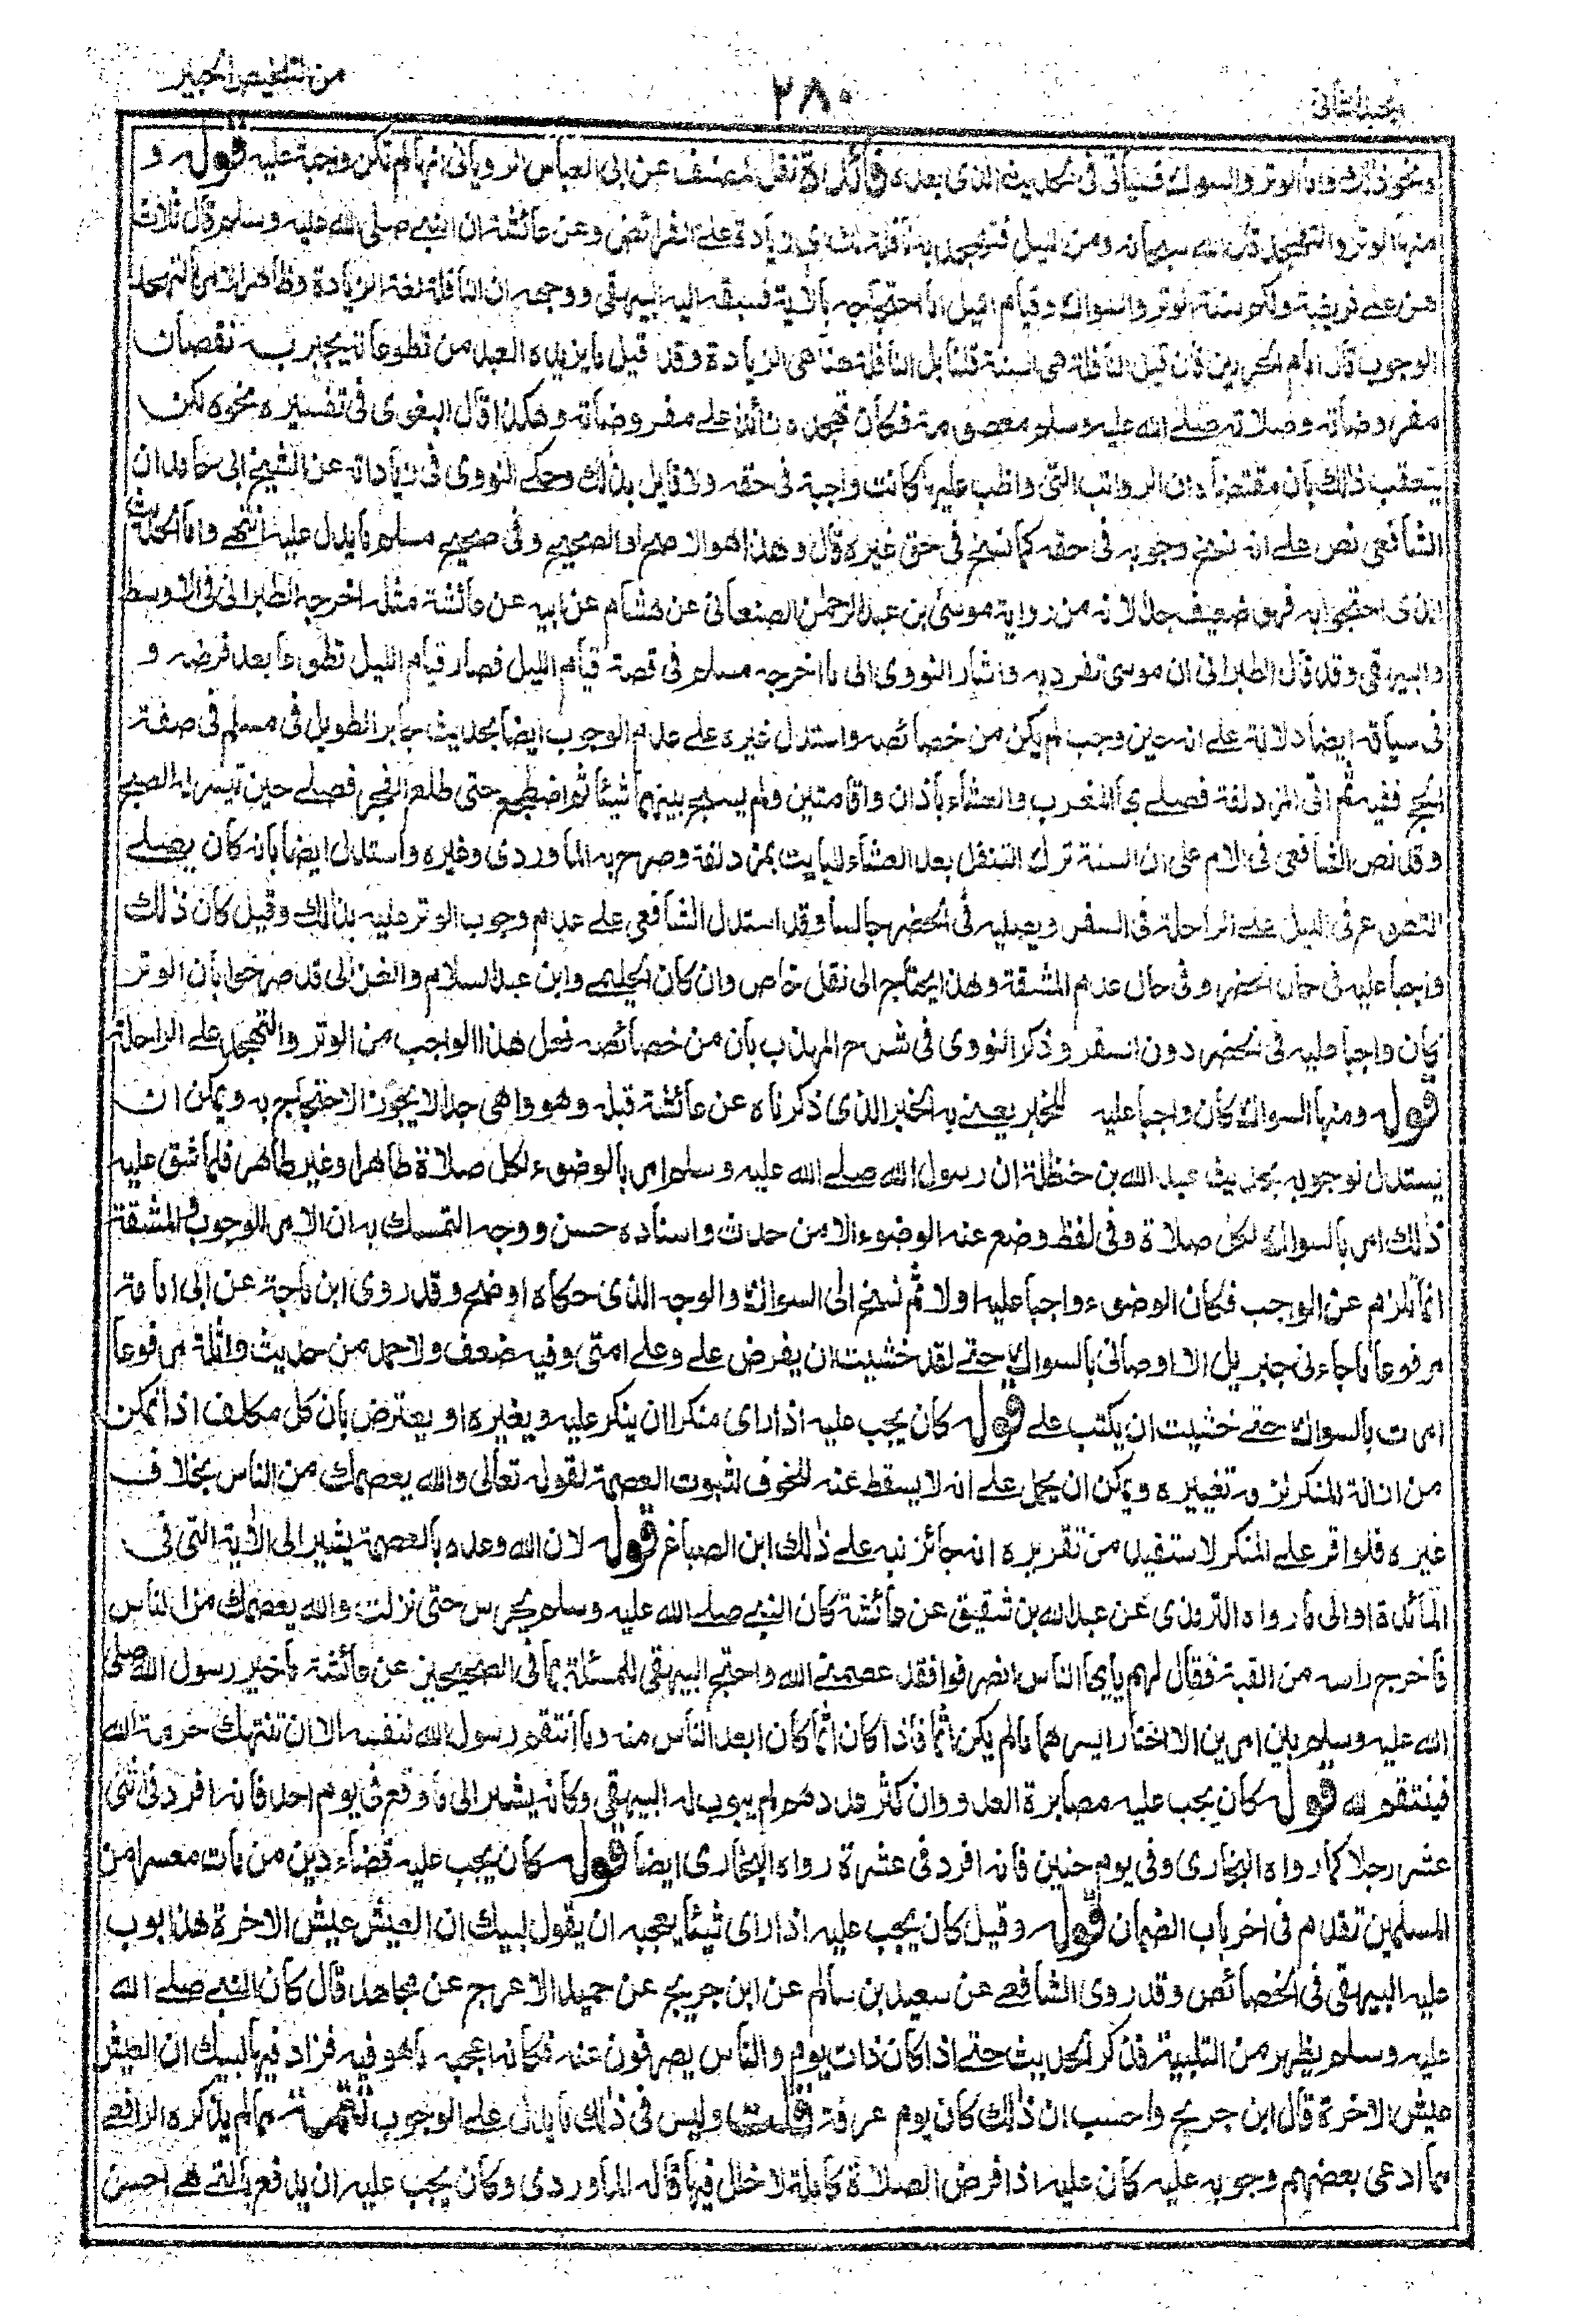 من التلخيص الحبير
٢٨٠
الجلد الثاني
ونحو ذلك واما الوتر والسواك فسياتي في الحديث الذي بعده فائدة نقل المصنف عن ابي العباس الروياني انها لم تكن واجبة عليه قوله و
منها الوتر والتهجد قال الله سبحانه ومن الليل فتهجد به نافلة لك اى زيادة على الفرائض وعن عائشة ان النبي صلى الله عليه وسلم قال ثلاث
هن علي فريضة ولكم سنة الوتر والسواك وقيام الليل اما احتجاجه بالاية فسبقه اليه البيهقي ووجهه ان النافلة لغة الزيادة وظاهر الامر بالتهجد
الوجوب قال امام الحرمين فان قيل النافلة هي السنة قلنا بل النافلة هنا هي الزيادة وقد قيل ما يزيده العبد من تطوعاته يجبر به نقصان
مفروضاته وصلاته صلى الله عليه وسلم معصومة فكان تهجده زائدا على مفروضاته وهكذا قال البغوي في تفسيره نحوه لكن
يتعقب ذلك بان مقتضاه ان الرواتب التي واظب عليها كانت واجبة في حقه ولا قايل بذلك وحكى النووي في زياداته عن الشيخ ابي حامد ان
الشافعي نص على انه نسخ وجوبه في حقه كما نسخ في حق غيره قال وهذا هو الاصح او الصحيح وفي صحيح مسلم ما يدل عليه انتهى واما الحديث
الذي احتجوا به فهو ضعيف جدا لانه من رواية موسى بن عبد الرحمن الصنعاني عن هشام عن ابيه عن عائشة مثله اخرجه الطبراني في الاوسط
والبيهقي وقد قال الطبراني ان موسى تفرد به واشار النووي الى ما اخرجه مسلم في قصة قيام الليل فصار قيام الليل تطوعا بعد فرضه و
في سياقه ايضا دلالة على انه حين وجب لم يكن من خصائصه واستدل غيره على عدم الوجوب ايضا بحديث جابر الطويل في مسلم في صفة
الحج ففيه ثم اتى المزدلفة فصلى بها المغرب والعشاء باذان واقامتين ولم يسبح بينهما شيئا ثم اضطجع حتى طلع الفجر فصلى حين تبين له الصبح
وقد نص الشافعي في الام على ان السنة ترك التنفل بعد العشاء للبايت بمزدلفة وصرح به الماوردي وغيره واستدل ايضا بانه كان يصلي
التطوع في الليل على الراحلة في السفر ويصليه في الحضر جالسا وقد استدل الشافعي على عدم وجوب الوتر عليه بذلك وقيل كان ذلك
واجبا عليه في حال الحضر وفي حال عدم المشقة وهذا يحتاج الى نقل خاص وان كان الحليمي وابن عبد السلام والغزالي قد صرحوا بان الوتر
كان واجبا عليه في الحضر دون السفر وذكر النووي في شرح المهذب بان من خصائصه فعل هذا الواجب من الوتر والتهجد على الراحلة
قوله ومنها السواك كان واجبا عليه للخبر يعني به الخبر الذي ذكرناه عن عائشة قبله وهو واهي جدا لا يجوز الاحتجاج به ويمكن ان
يستدل لوجوبه بحديث عبد الله بن حنظلة ان رسول الله صلى الله عليه وسلم امر بالوضوء لكل صلاة طاهرا وغير طاهر فلما شق عليه
ذلك امر بالسواك لكل صلاة وفي لفظ وضع عنه الوضوء الا من حدث واسناده حسن ووجه التمسك به ان الامر للوجوب والمشقة
انما تلزم عن الواجب فكان الوضوء واجبا عليه اولا ثم نسخ الى السواك والوجه الذي حكاه اوضح وقد روى ابن ماجة عن ابي امامة
مرفوعا ما جاءني جبريل الا اوصاني بالسواك حتى لقد خشيت ان يفرض علي وعلى امتي وفيه ضعف ولاحمد من حديث واثلة مرفوعا
امرت بالسواك حتى خشيت ان يكتب علي قوله كان يجب عليه اذا راى منكرا ان ينكر عليه ويغيره او يعترض بان كل مكلف اذا تمكن
من ازالة المنكر لزمه تغييره ويمكن ان يحمل على انه لا يسقط عنه للخوف لثبوت العصمة لقوله تعالى والله يعصمك من الناس بخلاف
غيره فلو اقر على المنكر لاستفيد من تقريره انه جائز نبه على ذلك ابن الصباغ قوله لان الله وعده بالعصمة يشير الى الاية التي في
المائدة او الى ما رواه الترمذي عن عبد الله بن شقيق عن عائشة كان النبي صلى الله عليه وسلم يحرس حتى نزلت والله يعصمك من الناس
فاخرج راسه من القبة فقال لهم يا ايها الناس انصرفوا فقد عصمني الله واحتج البيهقي للمسئلة بما في الصحيحين عن عائشة ما خير رسول الله صلى
الله عليه وسلم بين امرين الا اختار ايسرهما ما لم يكن اثما فاذا كان اثما كان ابعد الناس منه وما انتقم رسول الله لنفسه الا ان تنتهك حرمة الله
فينتقم لله قوله كان يجب عليه مصابرة العدو وان كثر عددهم لم يبوب له البيهقي وكانه يشير الى ما وقع في يوم احد فانه افرد في اثنى
عشر رجلا كما رواه البخاري وفي يوم حنين فانه افرد في عشرة رواه البخاري ايضا قوله كان يجب عليه قضاء دين من مات معسرا من
المسلمين تقدم في اخر باب الضمان قوله وقيل كان يجب عليه اذا راى شيئا يعجبه ان يقول لبيك ان العيش عيش الاخرة هذا بوب
عليه البيهقي في الخصائص وقد روى الشافعي عن سعيد بن سالم عن ابن جريج عن حميد الاعرج عن مجاهد قال كان النبي صلى الله
عليه وسلم يظهر من التلبية فذكر الحديث حتى اذا كان ذات يوم والناس يصرفون عنه فكانه اعجبه ما هو فيه فزاد فيها لبيك ان العيش
عيش الاخرة قال ابن جريج واحسب ان ذلك كان يوم عرفة قلت وليس في ذلك ما يدل على الوجوب تتمة مما لم يذكره الرافعي
مما ادعى بعضهم وجوبه عليه كان عليه اذا فرض الصلاة كاملة لا خلل فيها قاله الماوردي وكان يجب عليه ان يدفع بالتي هي احسن